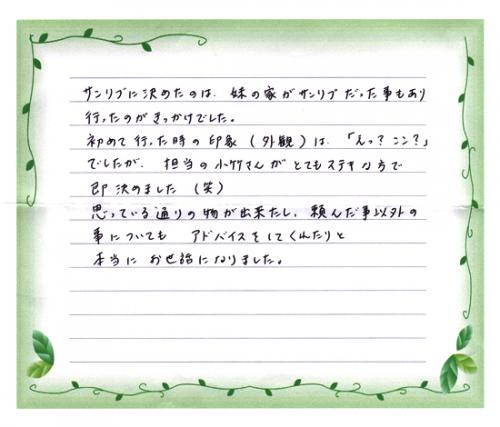 サンリブに決めたのは、妹の家がサンリブだった事もあり
行ったのがきっかけでした。
初めて行った時の印象(外観)は、「んっ?ここ?」
でしたが、担当の小竹さんがとてもステキな方で
即決めました(笑)
思っている通りの物が出来たし、頼んだ事以外の
事についても アドバイスをしてくれたりと
本当に お世話になりました。